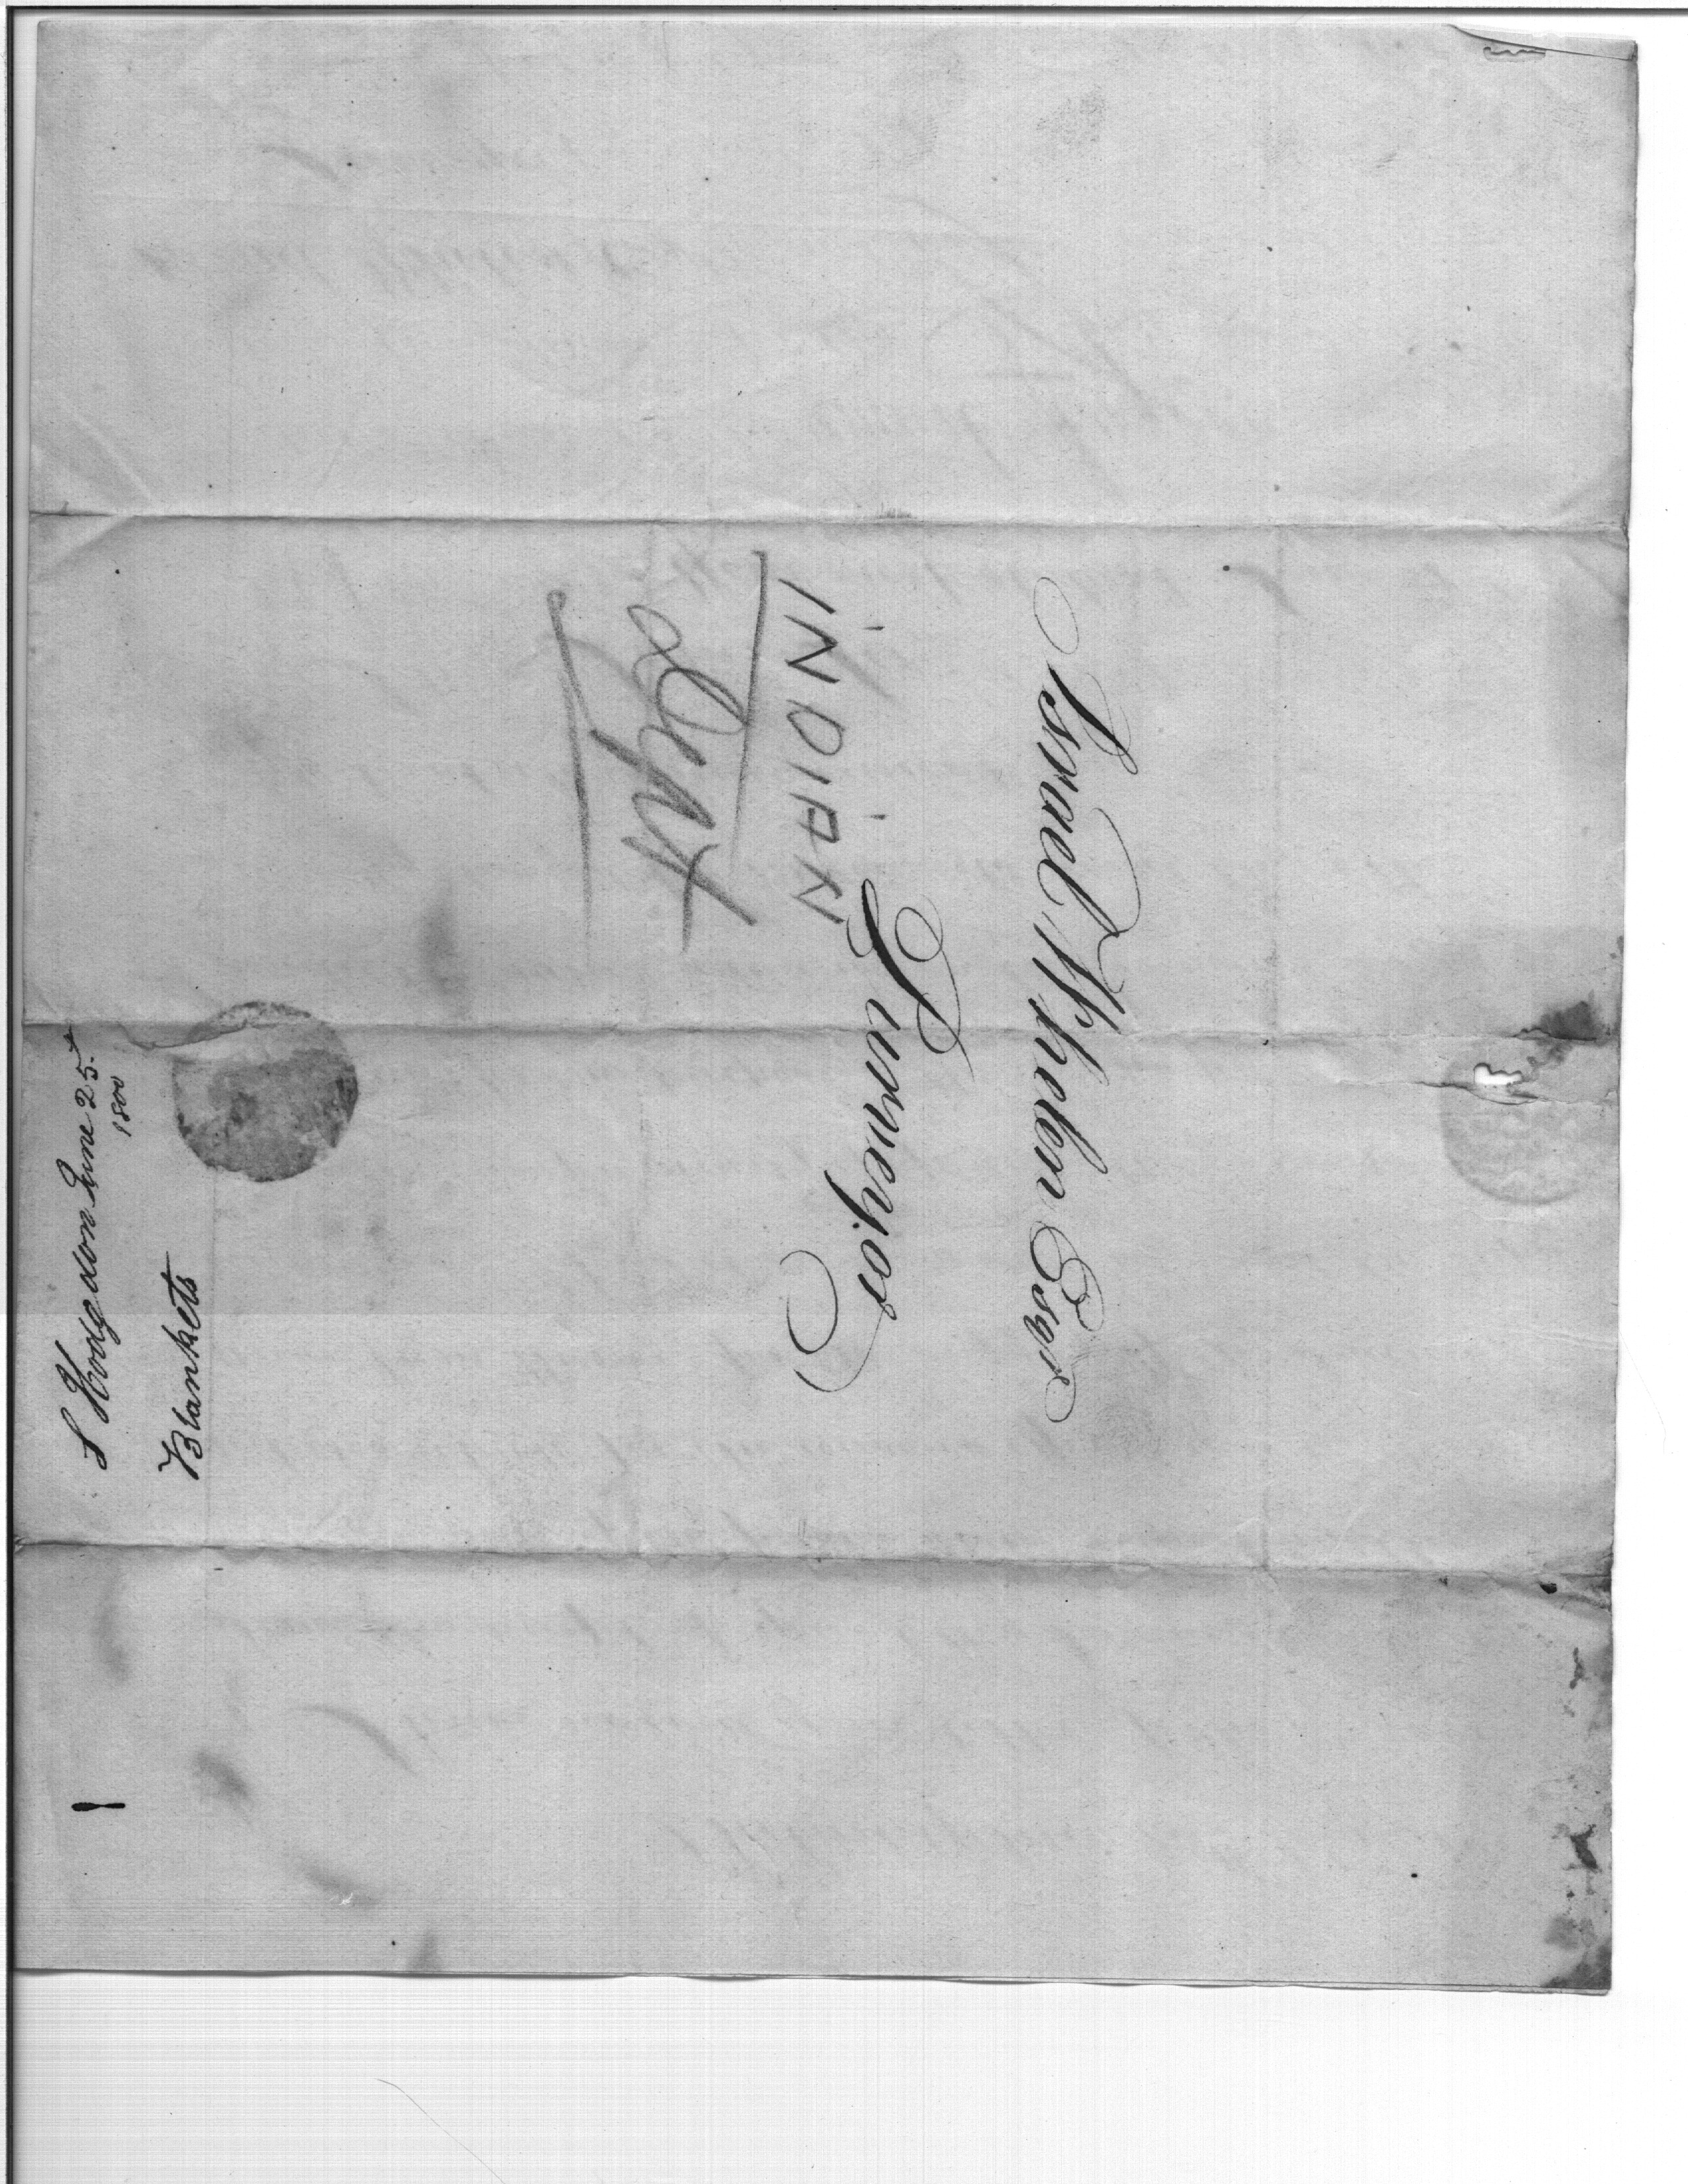 Israel Whelen Esqr
Purveyor
INDIAN
Dept
S Hodgdon June 25t
1800
Blankets